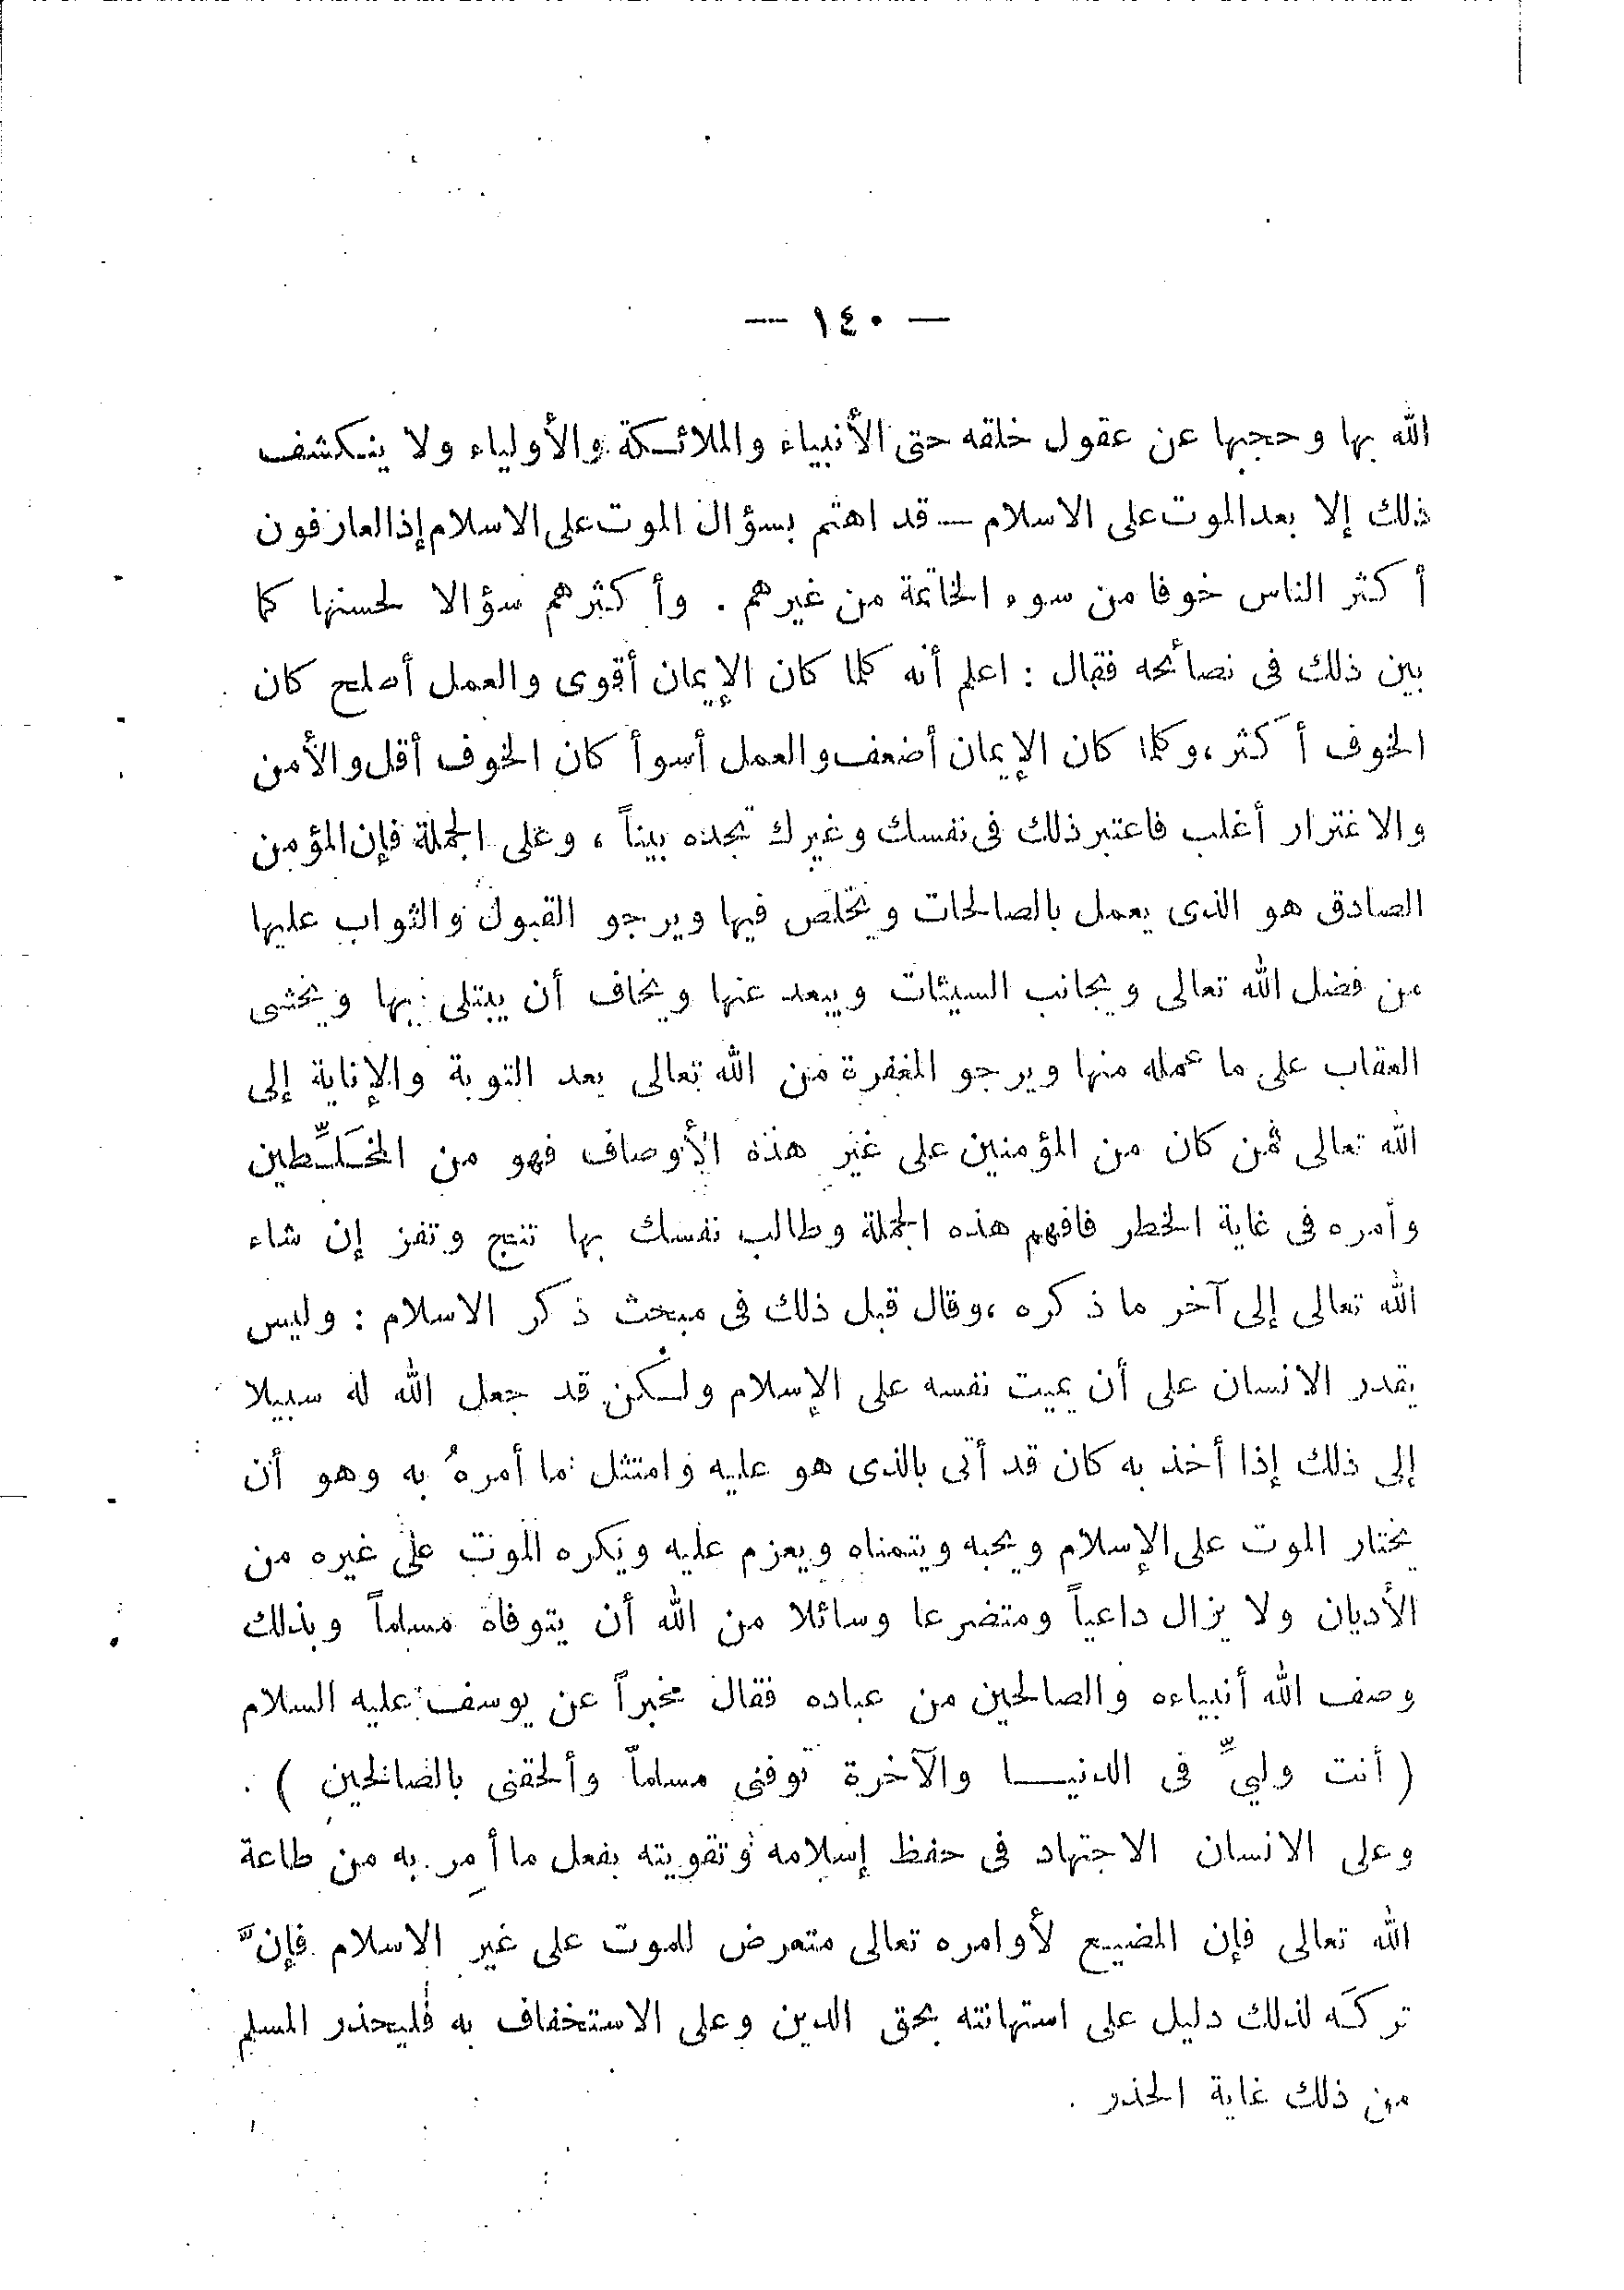 — ١٤٠ —
الله بها وحجبها عن عقول خلقه حتى الأنبياء والملائكة والأولياء ولا ينكشف
ذلك إلا بعد الموت على الاسلام — قد اهتم بسؤال الموت على الاسلام إذ العارفون
أكثر الناس خوفا من سوء الخاتمة من غيرهم . وأكثرهم سؤالا لحسنها كما
بين ذلك فى نصائحه فقال : اعلم أنه كلما كان الإيمان أقوى والعمل أصلح كان
الخوف أكثر ، وكلما كان الإيمان أضعف والعمل أسوأ كان الخوف أقل والأمن
والاغترار أغلب فاعتبر ذلك فى نفسك وغيرك تجده بيناً ، وعلى الجملة فإن المؤمن
الصادق هو الذى يعمل بالصالحات ويخلص فيها ويرجو القبول والثواب عليها
من فضل الله تعالى ويجانب السيئات ويبعد عنها ويخاف أن يبتلى بها ويخشى
العقاب على ما عمله منها ويرجو المغفرة من الله تعالى بعد التوبة والإنابة إلى
الله تعالى فمن كان من المؤمنين على غير هذه الأوصاف فهو من المخَلِّطين
وأمره فى غاية الخطر فافهم هذه الجملة وطالب نفسك بها تنج وتفز إن شاء
الله تعالى إلى آخر ما ذكره ، وقال قبل ذلك فى مبحث ذكر الاسلام : وليس
يقدر الانسان على أن يميت نفسه على الإسلام ولكن قد جعل الله له سبيلا
إلى ذلك إذا أخذ به كان قد أتى بالذى هو عليه وامتثل ما أمره به وهو أن
يختار الموت على الإسلام ويحبه ويتمناه ويعزم عليه ويكره الموت على غيره من
الأديان ولا يزال داعياً ومتضرعا وسائلا من الله أن يتوفاه مسلماً وبذلك
وصف الله أنبياءه والصالحين من عباده فقال مخبراً عن يوسف عليه السلام
( أنت وليِّ فى الدنيا والآخرة توفنى مسلماً وألحقنى بالصالحين ) .
وعلى الانسان الاجتهاد فى حفظ إسلامه وتقويته بفعل ما أمِر به من طاعة
الله تعالى فإن المضيع لأوامره تعالى متعرض للموت على غير الاسلام فإنَّ
تركَه لذلك دليل على استهانته بحق الدين وعلى الاستخفاف به فليحذر المسلم
من ذلك غاية الحذر .